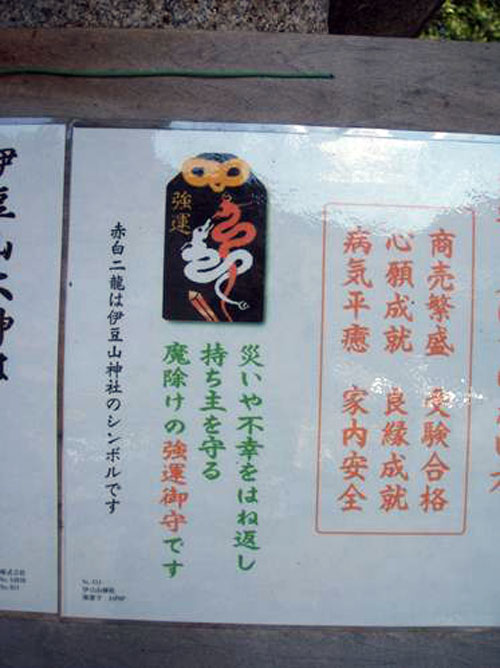 商売繁盛 受験合格
心願成就 良縁成就
病気平癒 家内安全
強運
災いや不幸をはね返し
持ち主を守る
魔除けの強運御守です
赤白二龍は伊豆山神社のシンボルです
伊豆山大神は